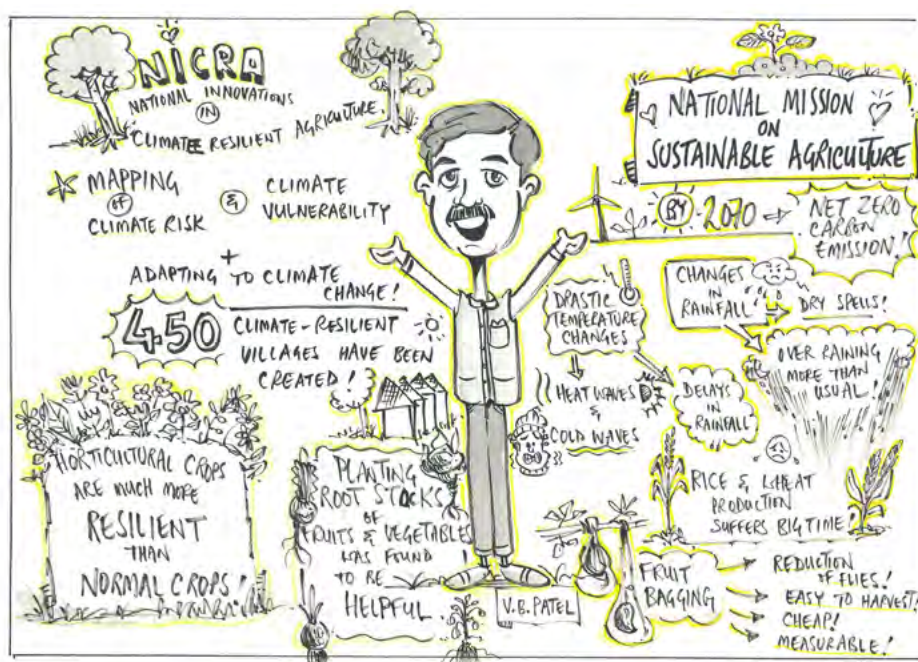 NICRA
NATIONAL INNOVATIONS
IN
CLIMATE RESILIENT AGRICULTURE
MAPPING
of
CLIMATE RISK
&
CLIMATE
VULNERABILITY
+
ADAPTING TO CLIMATE
CHANGE!
450
CLIMATE-RESILIENT
VILLAGES HAVE BEEN
CREATED!
HORTICULTURAL CROPS
ARE MUCH MORE
RESILIENT
THAN
NORMAL CROPS!
PLANTING
ROOT STOCKS
of
FRUITS & VEGETABLES
WAS FOUND
TO BE
HELPFUL
V.B. PATEL
NATIONAL MISSION
ON
SUSTAINABLE AGRICULTURE
BY 2070
NET ZERO
CARBON
EMISSION!
CHANGES
IN
RAINFALL
DRY SPELLS!
OVER RAINING
MORE THAN
USUAL!
DRASTIC
TEMPERATURE
CHANGES
HEAT WAVES
&
COLD WAVES
DELAYS
IN
RAINFALL
RICE & WHEAT
PRODUCTION
SUFFERS BIG TIME!
FRUIT
BAGGING
REDUCTION
OF FLIES!
EASY TO HARVEST!
CHEAP!
MEASURABLE!